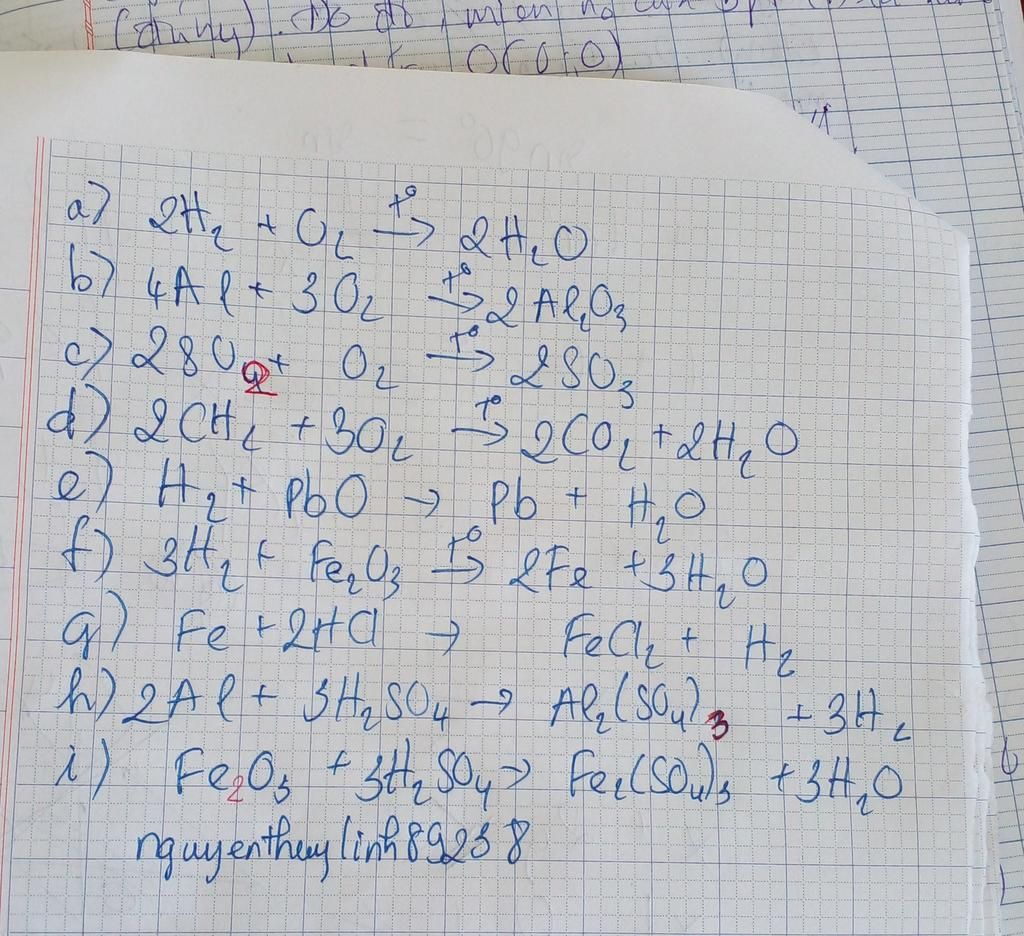 (đúng). Do đó, miền
O(0;0)
a) 2H₂ + O₂ →^t° 2H₂O
b) 4Al + 3O₂ →^t° 2Al₂O₃
c) 2SO₂ + O₂ →^t° 2SO₃
d) 2CH₂ + 3O₂ →^t° 2CO₂ + 2H₂O
e) H₂ + PbO → Pb + H₂O
f) 3H₂ + Fe₂O₃ →^t° 2Fe + 3H₂O
g) Fe + 2HCl → FeCl₂ + H₂
h) 2Al + 3H₂SO₄ → Al₂(SO₄)₃ + 3H₂
i) Fe₂O₃ + 3H₂SO₄ → Fe₂(SO₄)₃ + 3H₂O
nguyenthuylinh89238